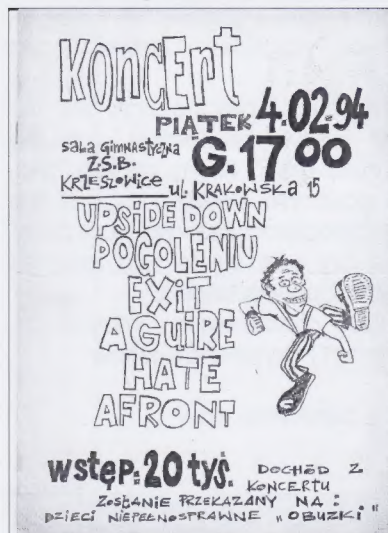 KONCERT
PIĄTEK 4.02.94
sala GimnastyczNA
Z.S.B.
G. 17 00
KRZESZOWice
ul. KRAKOWSKA 15
UPSIDE DOWN
POGOLENIU
EXiT
AGUiRE
HATE
AFRONT
wstęp: 20 tyś.
DOCHÓD Z
KONCERTU
ZOStANIE PRZEKAZANY NA:
DZIECI NIEPEŁNOSPRAWNE „OBUZKI"